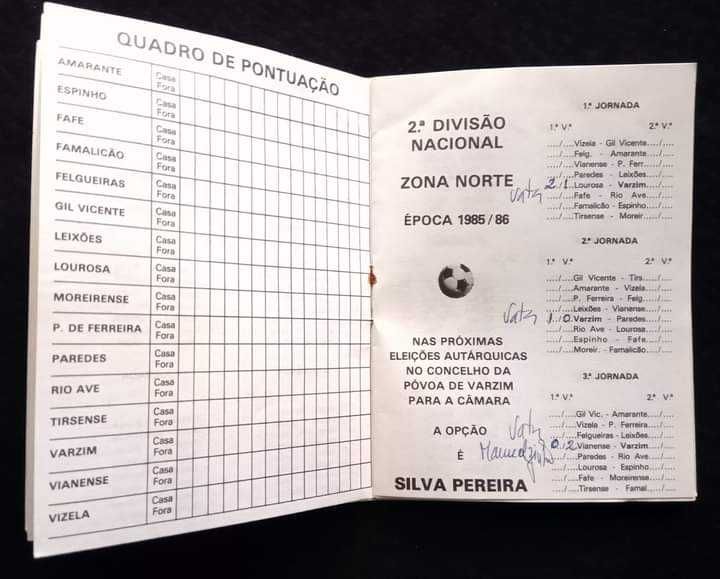 QUADRO DE PONTUAÇÃO
AMARANTE Casa Fora
ESPINHO Casa Fora
FAFE Casa Fora
FAMALICÃO Casa Fora
FELGUEIRAS Casa Fora
GIL VICENTE Casa Fora
LEIXÕES Casa Fora
LOUROSA Casa Fora
MOREIRENSE Casa Fora
P. DE FERREIRA Casa Fora
PAREDES Casa Fora
RIO AVE Casa Fora
TIRSENSE Casa Fora
VARZIM Casa Fora
VIANENSE Casa Fora
VIZELA Casa Fora
2.ª DIVISÃO
NACIONAL
ZONA NORTE
ÉPOCA 1985/86
NAS PRÓXIMAS
ELEIÇÕES AUTÁRQUICAS
NO CONCELHO DA
PÓVOA DE VARZIM
PARA A CÂMARA
A OPÇÃO
É
SILVA PEREIRA
1.ª JORNADA
1.ª V.ª 2.ª V.ª
..../....Vizela - Gil Vicente..../....
..../....Felg. - Amarante..../....
..../....Vianense - P. Ferr...../....
..../....Paredes - Leixões..../....
2/1 Lourosa - Varzim..../....
..../....Fafe - Rio Ave..../....
..../....Famalicão - Espinho..../....
..../....Tirsense - Moreir...../....
2.ª JORNADA
1.ª V.ª 2.ª V.ª
..../....Gil Vicente - Tirs...../....
..../....Amarante - Vizela..../....
..../....P. Ferreira - Felg...../....
..../....Leixões - Vianense..../....
1/0 Varzim - Paredes..../....
..../....Rio Ave - Lourosa..../....
..../....Espinho - Fafe..../....
..../....Moreir. - Famalicão..../....
3.ª JORNADA
1.ª V.ª 2.ª V.ª
..../....Gil Vic. - Amarante..../....
..../....Vizela - P. Ferreira..../....
..../....Felgueiras - Leixões..../....
0/2 Vianense - Varzim..../....
..../....Paredes - Rio Ave..../....
..../....Lourosa - Espinho..../....
..../....Fafe - Moreirense..../....
..../....Tirsense - Famal...../....